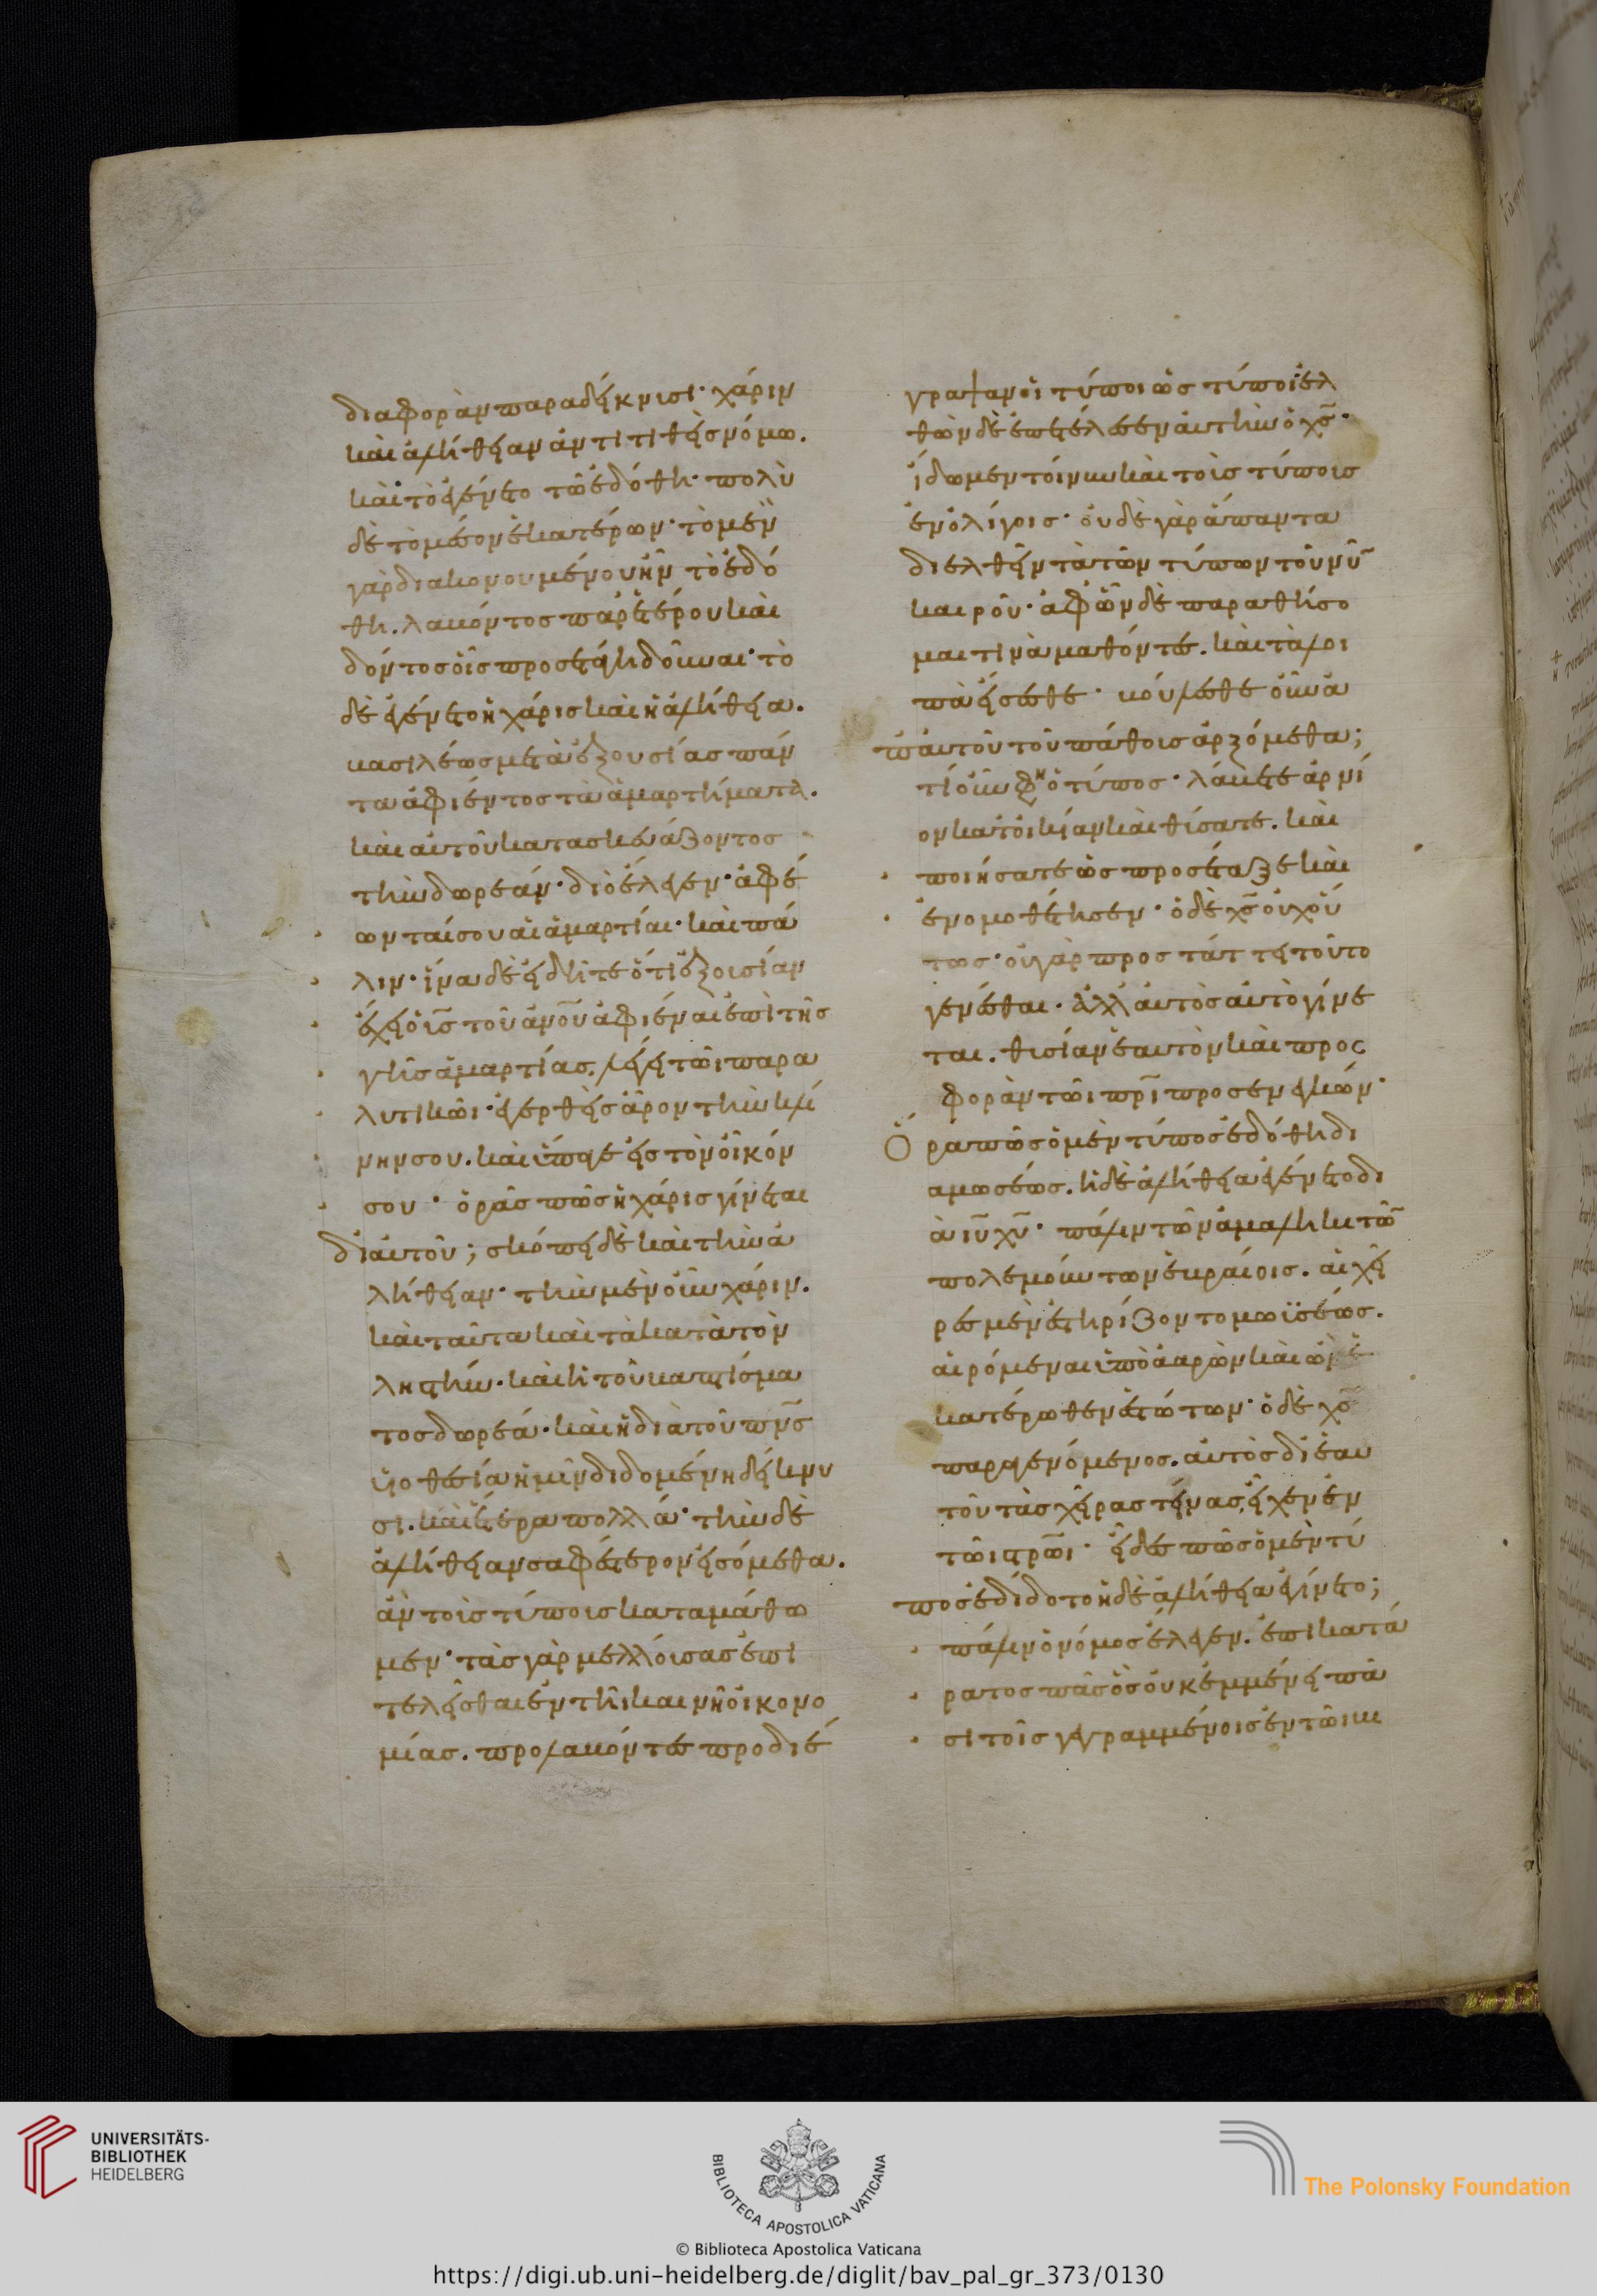 διαφορὰν παραδείκνυσι· χάριν
καὶ ἀλήθειαν ἀντιτιθεὶς νόμω.
καὶ τὸ ἐγένετο τῶ ἐδόθη· πολὺ
δὲ τὸ μέσον ἑκατέρων· τὸ μὲν
γὰρ διακονουμένου ἦν τὸ ἐδό
θη. λαβόντος παρ' ἑτέρου καὶ
δόντος οἷς προσετάγη δοῦναι· τὸ
δὲ ἐγένετο ἡ χάρις καὶ ἡ ἀλήθεια.
βασιλέως μετὰ ἐξουσίας πάν
τα ἀφιέντος τὰ ἁμαρτήματα.
καὶ αὐτοῦ κατασκευάζοντος
τὴν δωρεάν· διὸ ἔλεγεν· ἀφέ
ωνταί σου αἱ ἁμαρτίαι· καὶ πά
λιν· ἵνα δὲ εἰδῆτε ὅτι ἐξουσίαν
ἔχει ὁ υἱς τοῦ ἀνου ἀφιέναι ἐπὶ τῆς
γῆς ἁμαρτίας. λέγει τῶι παρα
λυτικῶι· ἐγερθεὶς ἆρον τὴν κλί
νην σου. καὶ ὕπαγε εἰς τὸν οἶκόν
σου· ὁρᾶς πῶς ἡ χάρις γίνεται
δι' αὐτοῦ; σκόπει δὲ καὶ τὴν ἀ
λήθειαν· τὴν μὲν οὖν χάριν.
καὶ ταῦτα καὶ τὰ κατὰ τὸν
ληστήν. καὶ ἡ τοῦ βαπτίσμα
τος δωρεά· καὶ ἡ διὰ τοῦ πνς
υἱοθεσία ἡμῖν διδομένη δείκνυ
σι. καὶ ἕτερα πολλά· τὴν δὲ
ἀλήθειαν σαφέστερον εἰσόμεθα.
ἂν τοὺς τύπους καταμάθω
μεν· τὰς γὰρ μελλούσας ἐπι
τελεῖσθαι ἐν τῆι καινῆ οἰκονο
μίας. προλαβόντες προδιέ
γραψαν οἱ τύποι ὡς τύποι· ἐλ
θὼν δὲ ἐπετέλεσεν αὐτὴν ὁ χς·
ἴδωμεν τοίνυν καὶ τοὺς τύπους
ἐν ὀλίγοις· οὐδὲ γὰρ ἅπαντα
διελθεῖν τὰ τῶν τύπων τοῦ νῦν
καιροῦ· ἀφ' ὧν δὲ παραθήσο
μαί τινα μαθόντες. καὶ τὰ λοι
πὰ εἴσεσθε· βούλεσθε οὖν ἀ
π' αὐτοῦ τοῦ πάθους ἀρξόμεθα;
τί οὖν φη ὁ τύπος· λάβετε ἀρνί
ον κατ' οἰκίαν καὶ θύσατε. καὶ
ποιήσατε ὡς προσέταξε καὶ
ἐνομοθέτησεν· ὁ δὲ χς οὐχ οὕ
τως· οὐ γὰρ προστάττει τοῦτο
γενέσθαι. ἀλλ' αὐτὸς αὐτὸ γίνε
ται. θυσίαν ἑαυτὸν καὶ προς
φορὰν τῶι πρι προσενεγκών·
Ὅρα πῶς ὁ μὲν τύπος ἐδόθη δι
ὰ μωσέως. ἡ δὲ ἀλήθεια ἐγένετο δι
ὰ ιυ χυ· πάλιν τῶν ἀμαληκιτῶν
πολεμούντων ἑβραίοις. αἱ χεῖ
ρες μὲν ἐστηρίζοντο μωϋσέως.
αἰρόμεναι ὑπὸ ἀαρὼν καὶ ὢρ ἑ
κατέρωθεν ἑστώτων· ὁ δὲ χς
παραγενόμενος. αὐτὸς δι' ἑαυ
τοῦ τὰς χεῖρας τείνας, εἶχεν ἐν
τῶι στρωι· εἶδες πῶς ὁ μὲν τύ
πος ἐδίδοτο ἡ δὲ ἀλήθεια ἐγίνετο;
πάλιν ὁ νόμος ἔλεγεν. ἐπικατά
ρατος πᾶς ὃς οὐκ ἐμμένει πᾶ
σι τοῖς γεγραμμένοις ἐν τῶι βι
UNIVERSITÄTS-
BIBLIOTHEK
HEIDELBERG
BIBLIOTECA APOSTOLICA VATICANA
The Polonsky Foundation
© Biblioteca Apostolica Vaticana
https://digi.ub.uni-heidelberg.de/diglit/bav_pal_gr_373/0130